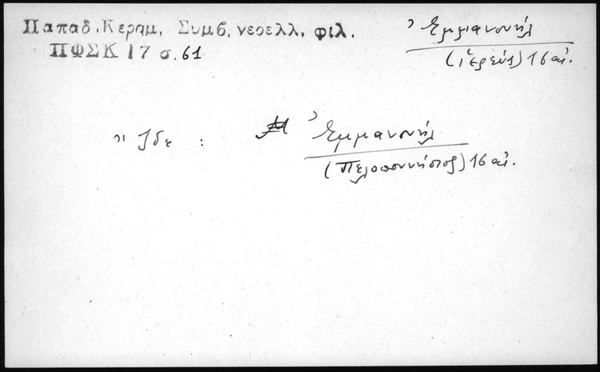 Παπαδ. Κεραμ. Συμβ. νεοελλ. φιλ.
ΠΦΣΚ 17 σ. 61
Ἐμμανουήλ
(ἱερεύς) 16 αἰ.
Ἴδε :
Ἐμμανουήλ
(Πελοποννήσιος) 16 αἰ.